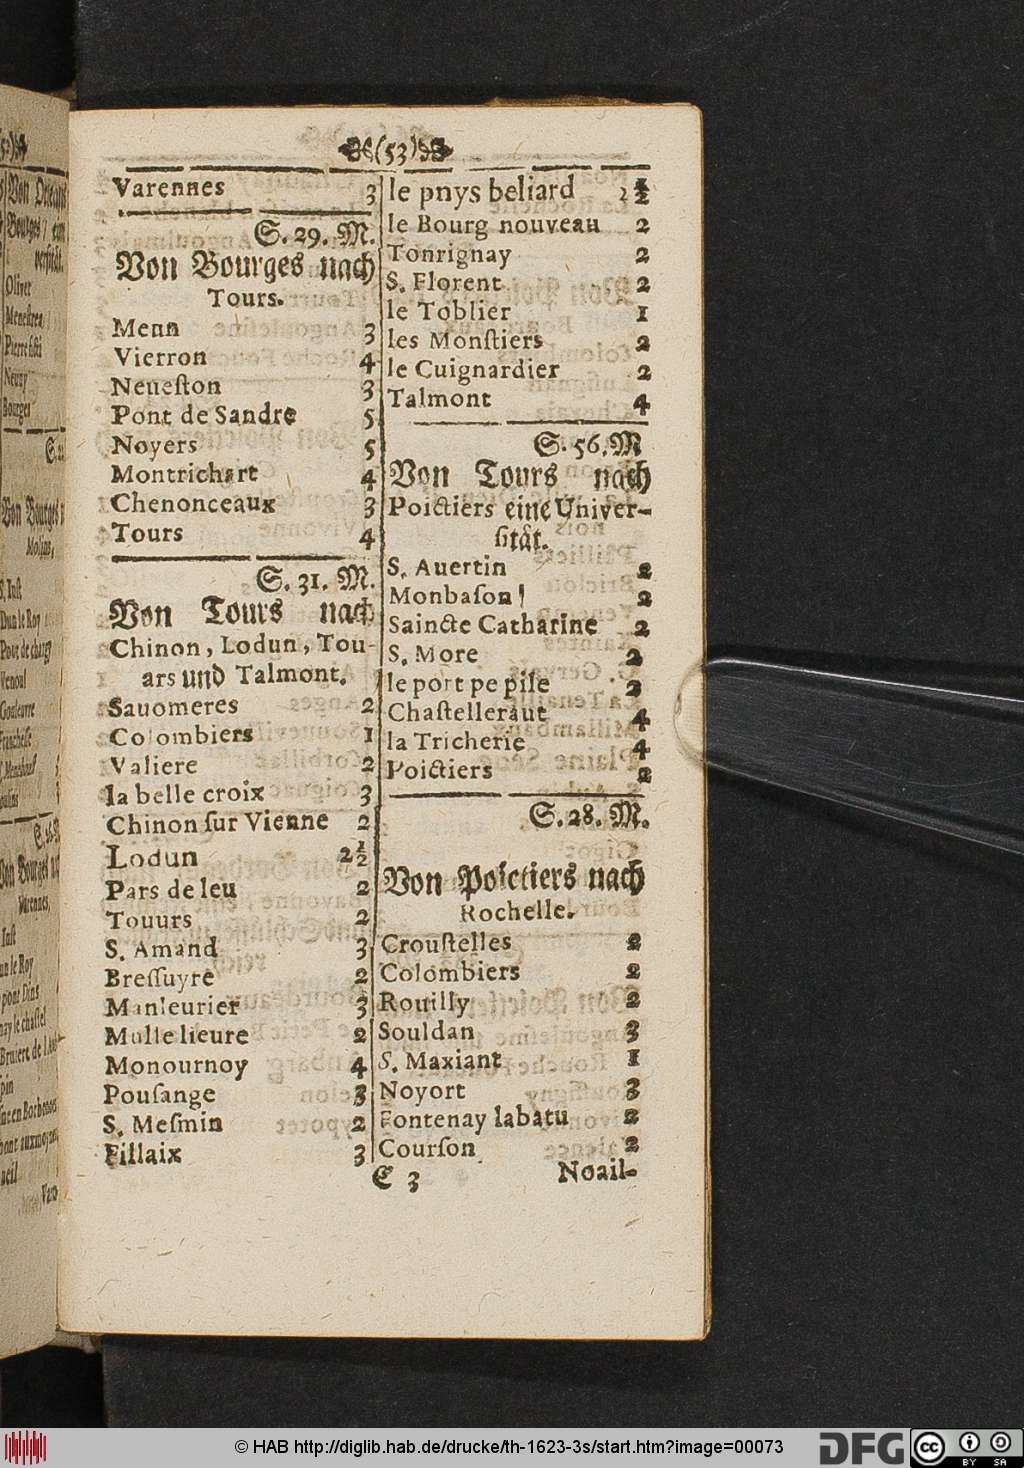 (53)
Varennes 3
S. 29. M.
Von Bourges nach
Tours.
Menn 3
Vierron 4
Neueſton 3
Pont de Sandre 5
Noyers 5
Montrichart 4
Chenonceaux 3
Tours 4
S. 31. M.
Von Tours nach
Chinon, Lodun, Tou-
ars und Talmont.
Sauomeres 2
Colombiers 1
Valiere 2
la belle croix 3
Chinon ſur Vienne 2
Lodun 2½
Pars de leu 2
Touurs 2
S. Amand 3
Breſſuyre 2
Manleurier 3
Mulle lieure 2
Monournoy 4
Pouſange 3
S. Meſmin 2
Fillaix 3
le pnys beliard 2½
le Bourg nouveau 2
Tonrignay 2
S. Florent 2
le Toblier 1
les Monſtiers 2
le Cuignardier 2
Talmont 4
S. 56. M
Von Tours nach
Poictiers eine Univer-
ſitåt.
S. Auertin 2
Monbaſon 2
Saincte Catharine 2
S. More 2
le port pe pile 3
Chaſtelleraut 4
la Tricherie 4
Poictiers 2
S. 28. M.
Von Poictiers nach
Rochelle.
Crouſtelles 2
Colombiers 2
Rouilly 2
Souldan 3
S. Maxiant 1
Noyort 3
Fontenay labatu 2
Courſon 2
E 3 Noail-
Oliver
Meneſtrea
Neuvy
Bourges
Varennes,
© HAB http://diglib.hab.de/drucke/th-1623-3s/start.htm?image=00073
DFG
cc BY SA